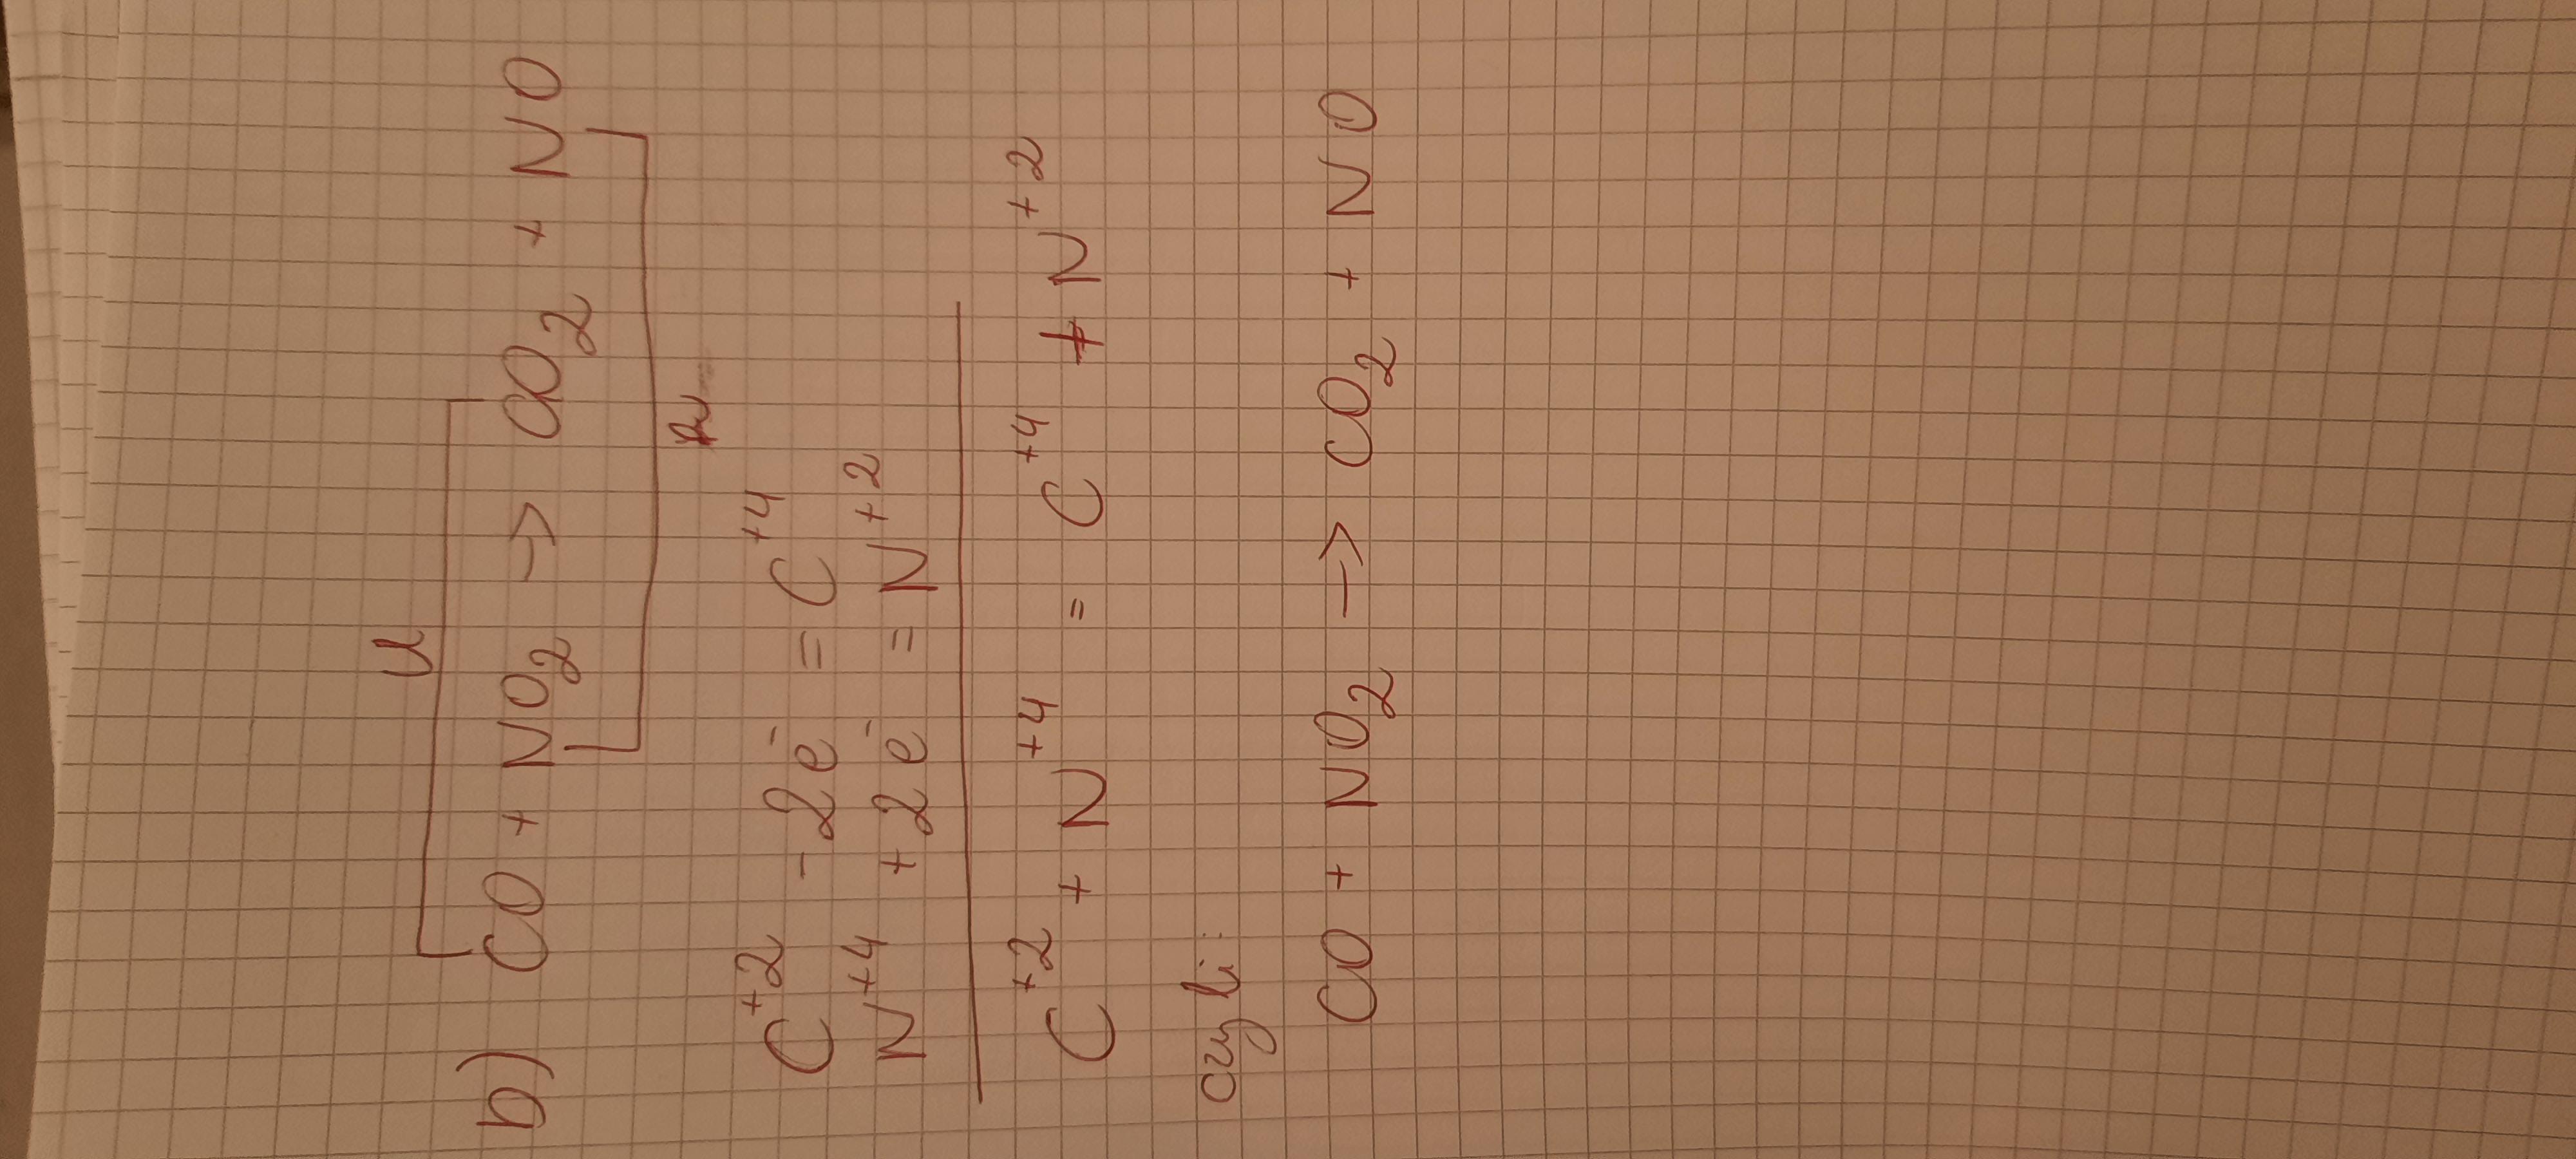 u
b) CO + NO₂ → CO₂ + NO
C⁺² - 2e⁻ = C⁺⁴
N⁺⁴ + 2e⁻ = N⁺²
C⁺² + N⁺⁴ = C⁺⁴ + N⁺²
czyli:
CO + NO₂ → CO₂ + NO